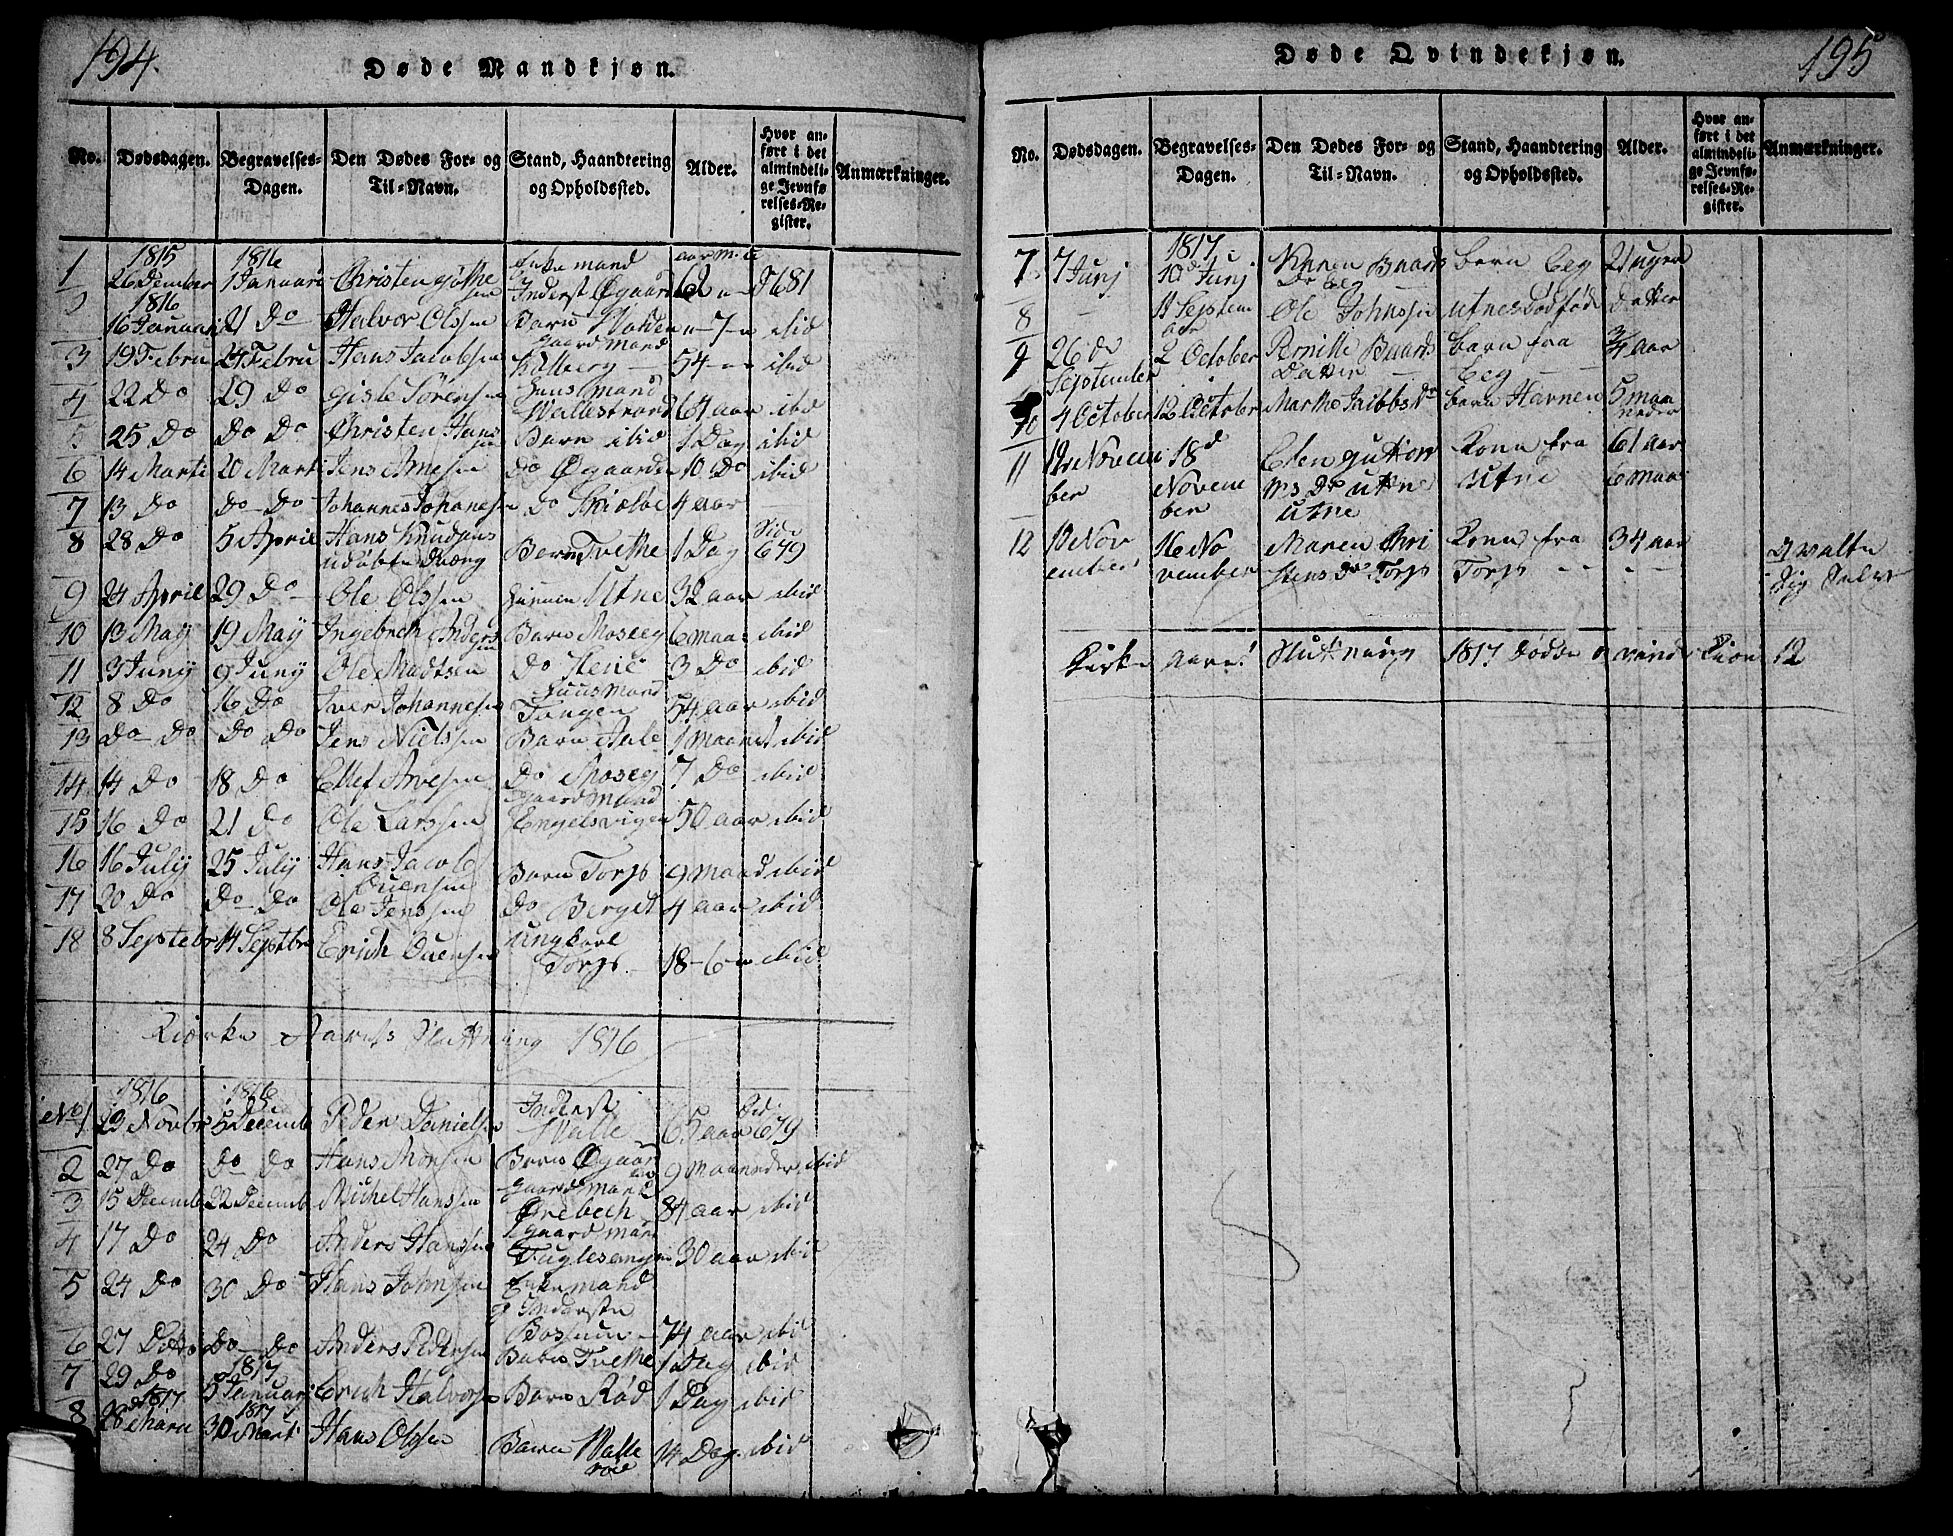 194.
Døde Mandkjøn.
No. Dødsdagen. Begravelses-Dagen. Den Dødes For- og Til-Navn. Stand, Haandtering og Opholdssted. Alder. Hvor anført i det almindelige Jevnførelses-Register. Anmærkninger.
1 1815 26 December 1816 1 Januari Christen Gøthesen Enkemand Inderst Øgaarden 62 681
1816 16 Januari 21 Do Halvor Olssen Barn Holden 7 ibid
3 19 Febru 24 Febru Hans Jacobsen Gaardmand Kalberg 54 ibid
4 22 Do 29 Do Gisle Sørensen Huusmand Wallestrand 64 aar ibid
5 25 Do Do Do Christen Hanssen Barn ibid 1 Dag ibid
6 14 Marti 20 Marti Jens Arnesen Do Øgaarden 10 Do ibid
7 13 Do Do Do Johannes Johanesen Do 4 aar
8 28 Do 5 April Hans Knudsens udøbte Dreng Barn Tvethe 1 Dag Sid 649
9 24 April 29 Do Ole Olssen Utne 32 aar ibid
10 13 May 19 May Ingebreth Anderssen Barn Moseeg 6 maa ibid
11 3 Juny 9 Juny Ole Madtsen Do 3 Do ibid
12 8 Do 16 Do Iver Johannesen Huusmand Tangen 54 aar ibid
13 Do Do Do Do Jens Nielssen Barn 1 maanet ibid
14 14 Do 18 Do Ellef Arvesen Do Moseeg 7 Do ibid
15 16 Do 21 Do Ole Larssen Gaardmand Engelsvigen 50 aar ibid
16 16 July 25 July Hans Jacob Ouensen Barn Torp 9 maand ibid
17 20 Do Do Do Ole Jenssen Do Berget 4 aar ibid
18 8 Septebr 14 Septbr Erich Ouensen Ungkarl Torp 18 - 6 ibid
Kiørke Aarets Sluttning 1816
No 1 1816 29 Novbr 1816 5 Decemb Peder Danielsen Inderst Walle 65 aar Sid 679
2 27 Do Do Do Hans Monsen Barn Øgaarden 9 maaneder ibid
3 15 Decemb 22 Decemb Michel Hanssen Gaardmand Ørebech 84 aar ibid
4 17 Do 24 Do Anders Hanssen Gaardmand Fuglesangen 30 aar ibid
5 24 Do 30 Do Hans Johnsen Enkemand Inderste Bossum 74 aar ibid
6 27 Do Do Do Anders Pedersen Barn Tvethe 1 Dag ibid
7 29 Do 1817 5 Januari Erich Halvorsen Barn Rød 1 Dag ibid
8 1817 28 Marti 1817 30 Marti Hans Olssen Barn Walle 14 Dag ibid
195
Døde Qvindekjøn.
No. Dødsdagen. Begravelses-Dagen. Den Dødes For- og Til-Navn. Stand, Haandtering og Opholdssted. Alder. Hvor anført i det almindelige Jevnførelses-Register. Anmærkninger.
7 7 Junj 1817 10 Junj Baards Dr Eeg barn Eeg 21 uger
8 - 11 Septem Ole Johnssen Utnes dødfødt datter
9 26 de September 2 October Pernille Baards Datter barn fra Eeg 3/4 aar
10 4 October 12 October Marthe Jacobs Dr barn Havnen 5 maaneder
11 12 November 18d November Elen Guttorms Dr Utne Kone fra Utne 61 aar 6 maa
12 10 November 16 November Maren Christens Dr Torp Kone fra Torp 34 aar qvalte sig selv
Kirke aare! Sluttning 1817 døde qvinde kiøn 12